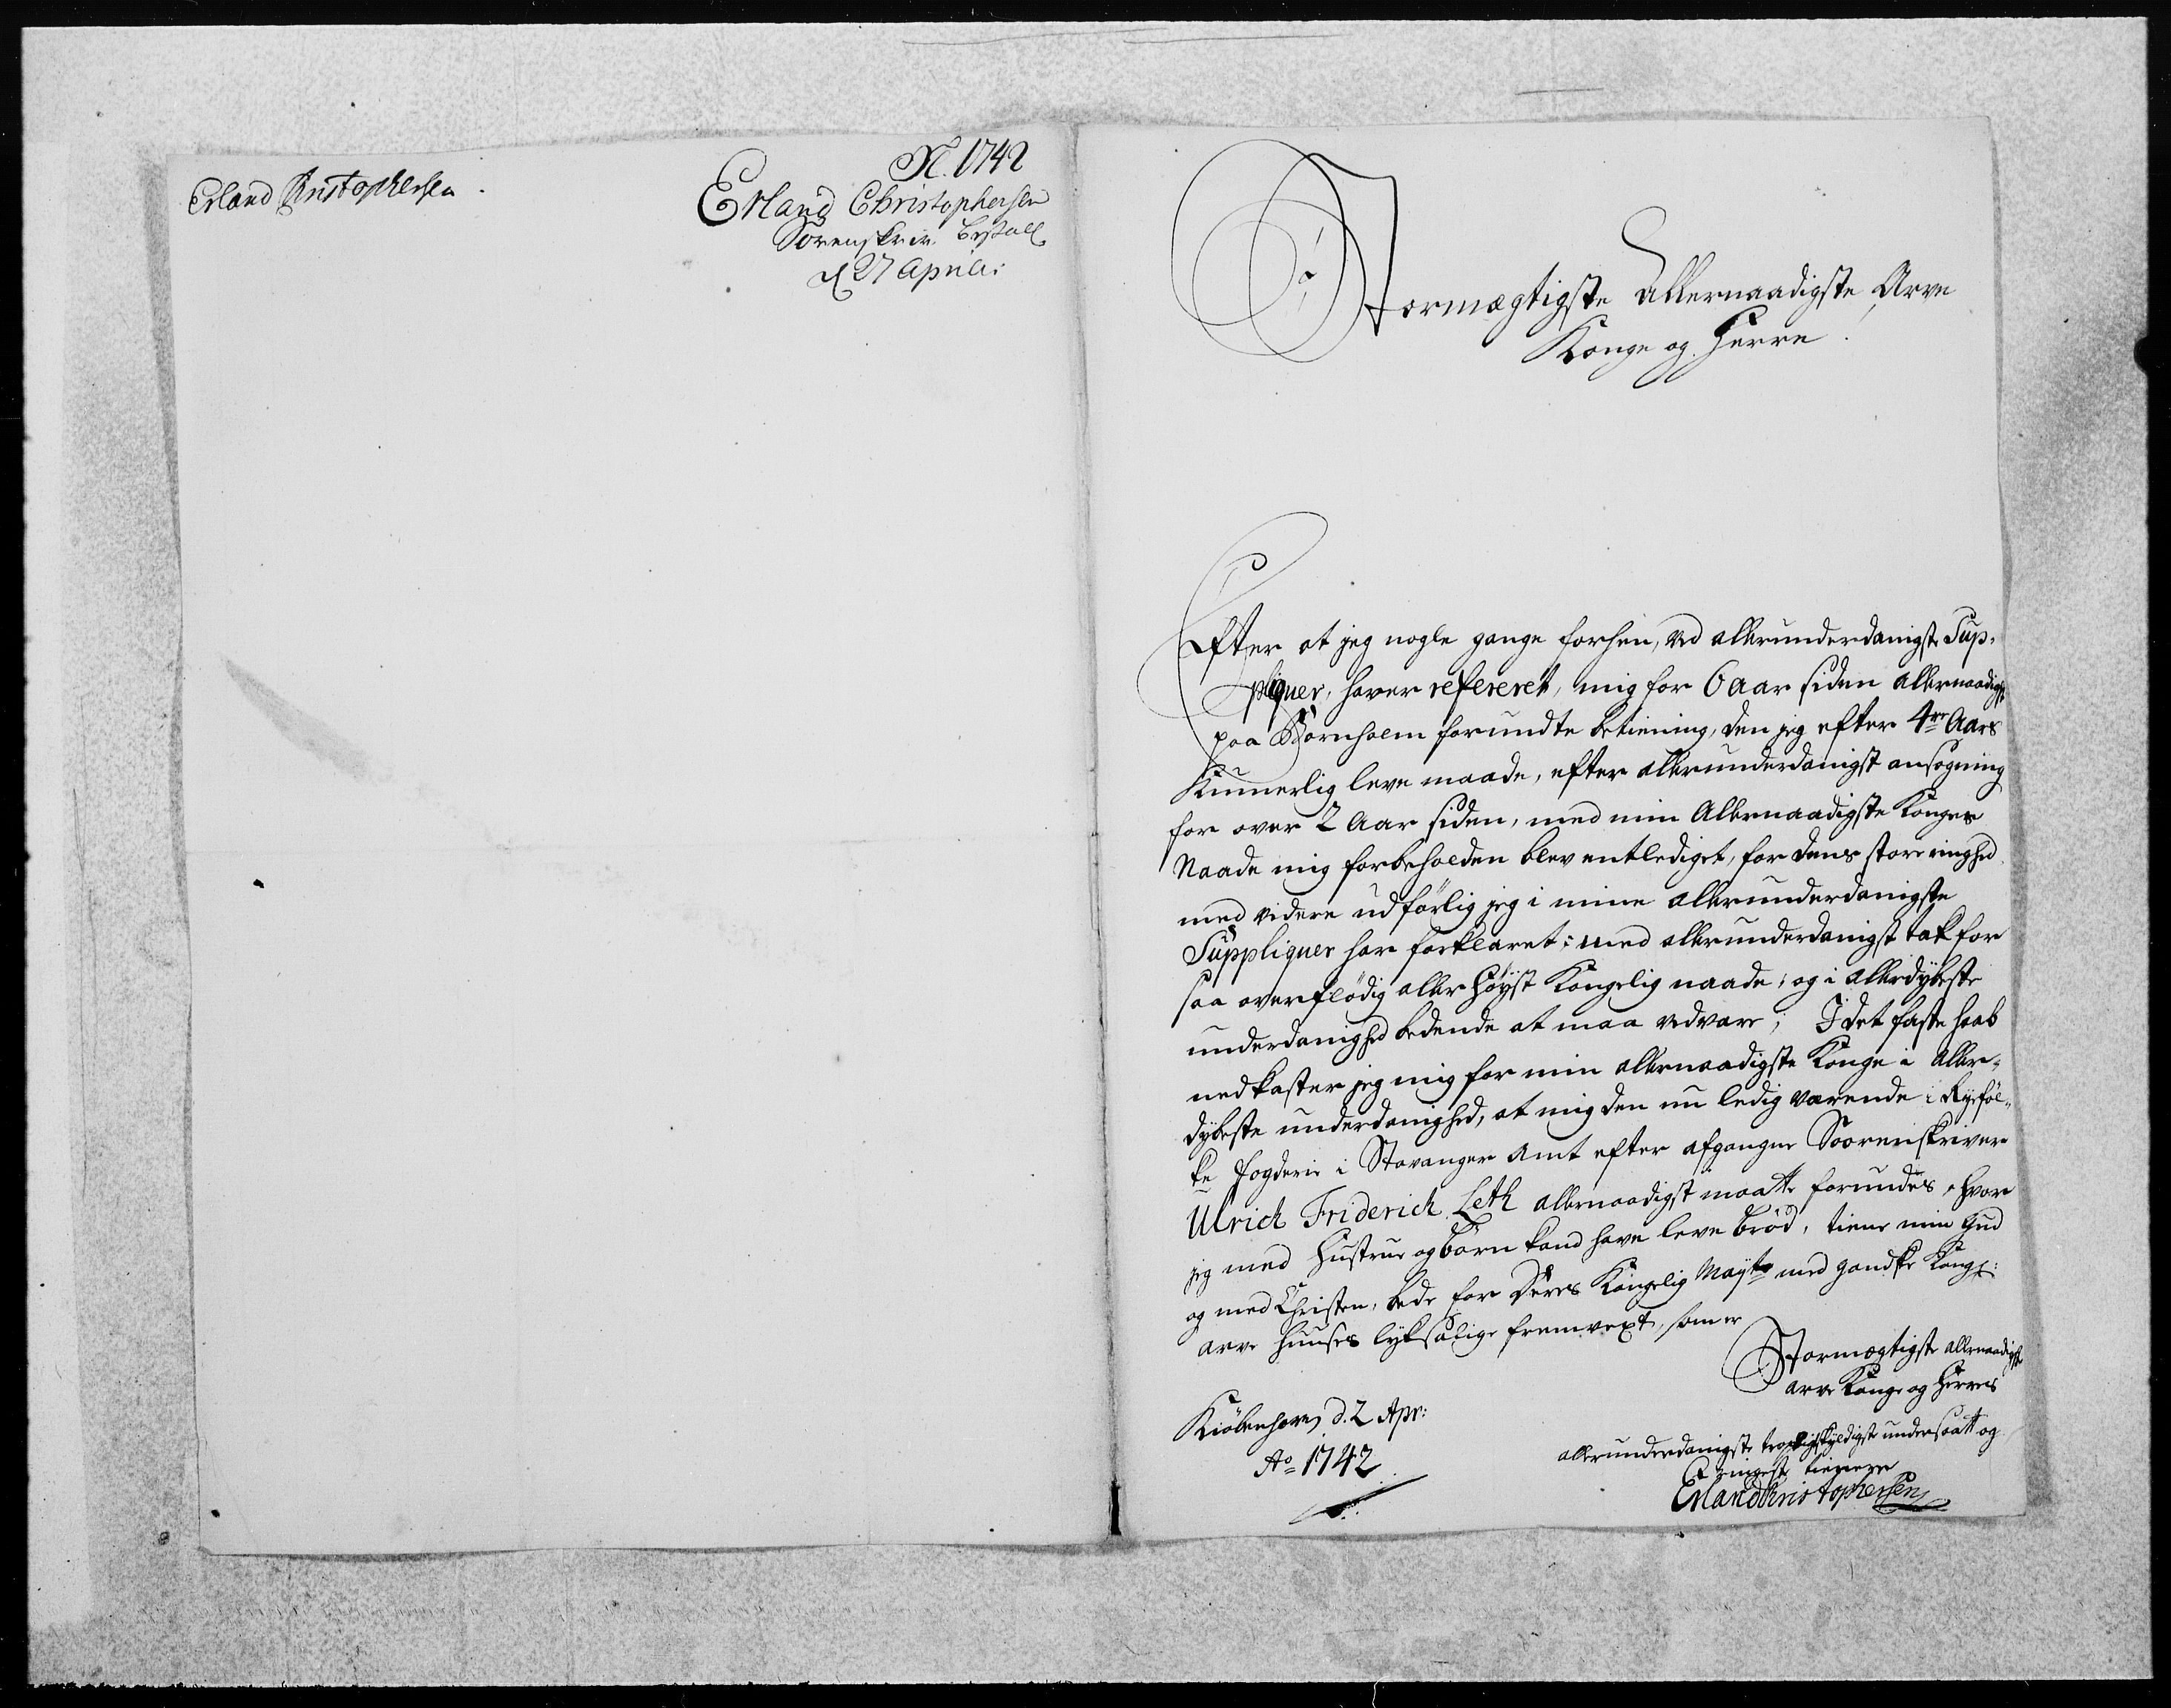 Erland Kristophersen.
N. 1742
Erland Christophersen
Sorenskriv. Bestall.
d 27 Aprilis
Stormægtigste Allernaadigste Arve
Konge og Herre!
Efter at jeg nogle gange forhen, ved allerunderdanigste Sup-
pliquer, haver refereret, mig for 6 aar siden allernaadigst
paa Bornholm forundte betiening, den jeg efter 4re Aars
Kummerlig leve maade, efter allerunderdanigst ansøgning
for over 2 Aar siden, med min Allernaadigste Konges
Naade mig forbeholden blev entlediget, for dens store ringhed
med videre udførlig jeg i mine allerunderdanigste
Suppliquer har forklaret; med allerunderdanigst tak for
saa overflødig aller Høyst Kongelig naade, og i allerdybeste
underdanighed bedende at maa vedvare; I det faste haab
nedkaster jeg mig for min allernaadigste Konge i Aller-
dybeste underdanighed, at mig den nu ledig værende i Ryeføl-
ke fogderie i Stavanger Amt efter afgangne Soorenskriver
Ulrich Friderich Leth allernaadigst maatte forundes, hvor
jeg med Hustrue og børn kand have leve brød, tiene min Gud
og med Christen, bede for Deres Kongelig Mayts med gandske Kongl:
arve huuses lyksalige fremvext, som er
Stormægtigste allernaadigste
arve Konge og Herres
Kiøbenhavn d. 2 Apr:
Ao 1742
allerunderdanigste troepligtskyldigste undersaatt og
ringeste tienere
Erland Kristophersen